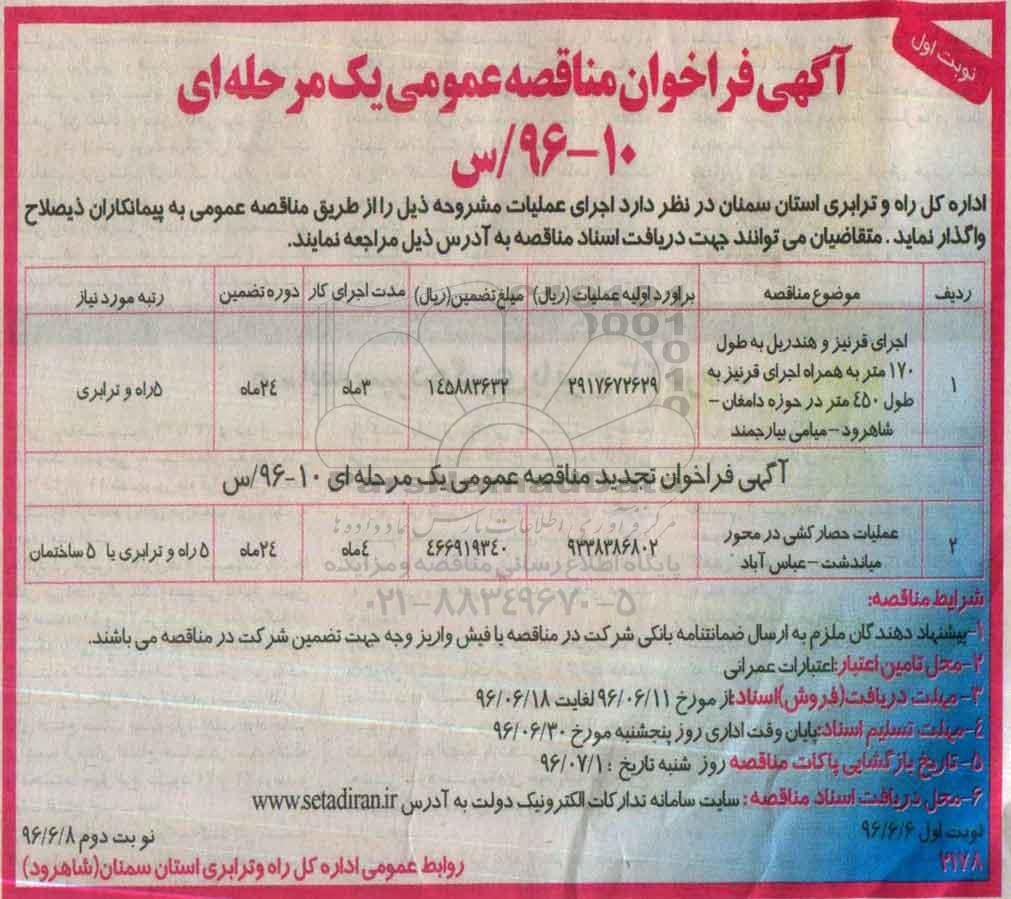 نوبت اول
آگهی فراخوان مناقصه عمومی یک مرحله ای
۹۶-۱۰/س
اداره کل راه و ترابری استان سمنان در نظر دارد اجرای عملیات مشروحه ذیل را از طریق مناقصه عمومی به پیمانکاران ذیصلاح
واگذار نماید. متقاضیان می توانند جهت دریافت اسناد مناقصه به آدرس ذیل مراجعه نمایند.
ردیف موضوع مناقصه براورد اولیه عملیات (ریال) مبلغ تضمین (ریال) مدت اجرای کار دوره تضمین رتبه مورد نیاز
اجرای قرنیز و هندریل به طول
۱۷۰ متر به همراه اجرای قرنیز به
طول ۴۵۰ متر در حوزه دامغان -
شاهرود - میامی بیارجمند
۱ ۲۹۱۷۶۷۲۶۲۹ ۱۴۵۸۸۳۶۳۲ ۳ماه ۲۴ماه ۵راه و ترابری
آگهی فراخوان تجدید مناقصه عمومی یک مرحله ای ۱۰-۹۶/س
عملیات حصار کشی در محور
میاندشت - عباس آباد
۲ ۹۳۳۸۳۸۶۸۰۲ ۴۶۶۹۱۹۳۴۰ ۴ماه ۲۴ماه ۵ راه و ترابری یا ۵ ساختمان
مرکز فرآوری اطلاعات پارس نماد داده ها
پایگاه اطلاع رسانی مناقصه و مزایده
۰۲۱-۸۸۳۴۹۶۷۰-۵
شرایط مناقصه:
۱-پیشنهاد دهندگان ملزم به ارسال ضمانتنامه بانکی شرکت در مناقصه یا فیش واریز وجه جهت تضمین شرکت در مناقصه می باشند.
۲-محل تامین اعتبار:اعتبارات عمرانی
۳- مهلت دریافت(فروش)اسناد:از مورخ ۹۶/۰۶/۱۱ لغایت ۹۶/۰۶/۱۸
۴-مهلت تسلیم اسناد:پایان وقت اداری روز پنجشنبه مورخ ۹۶/۰۶/۳۰
۵- تاریخ بازگشایی پاکات مناقصه روز شنبه تاریخ : ۹۶/۰۷/۱
۶-محل دریافت اسناد مناقصه : سایت سامانه تدارکات الکترونیک دولت به آدرس www.setadiran.ir
نوبت اول ۹۶/۶/۶ نوبت دوم ۹۶/۶/۸
۲۱۷۸ روابط عمومی اداره کل راه وترابری استان سمنان(شاهرود)